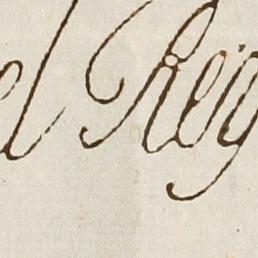 el Reg